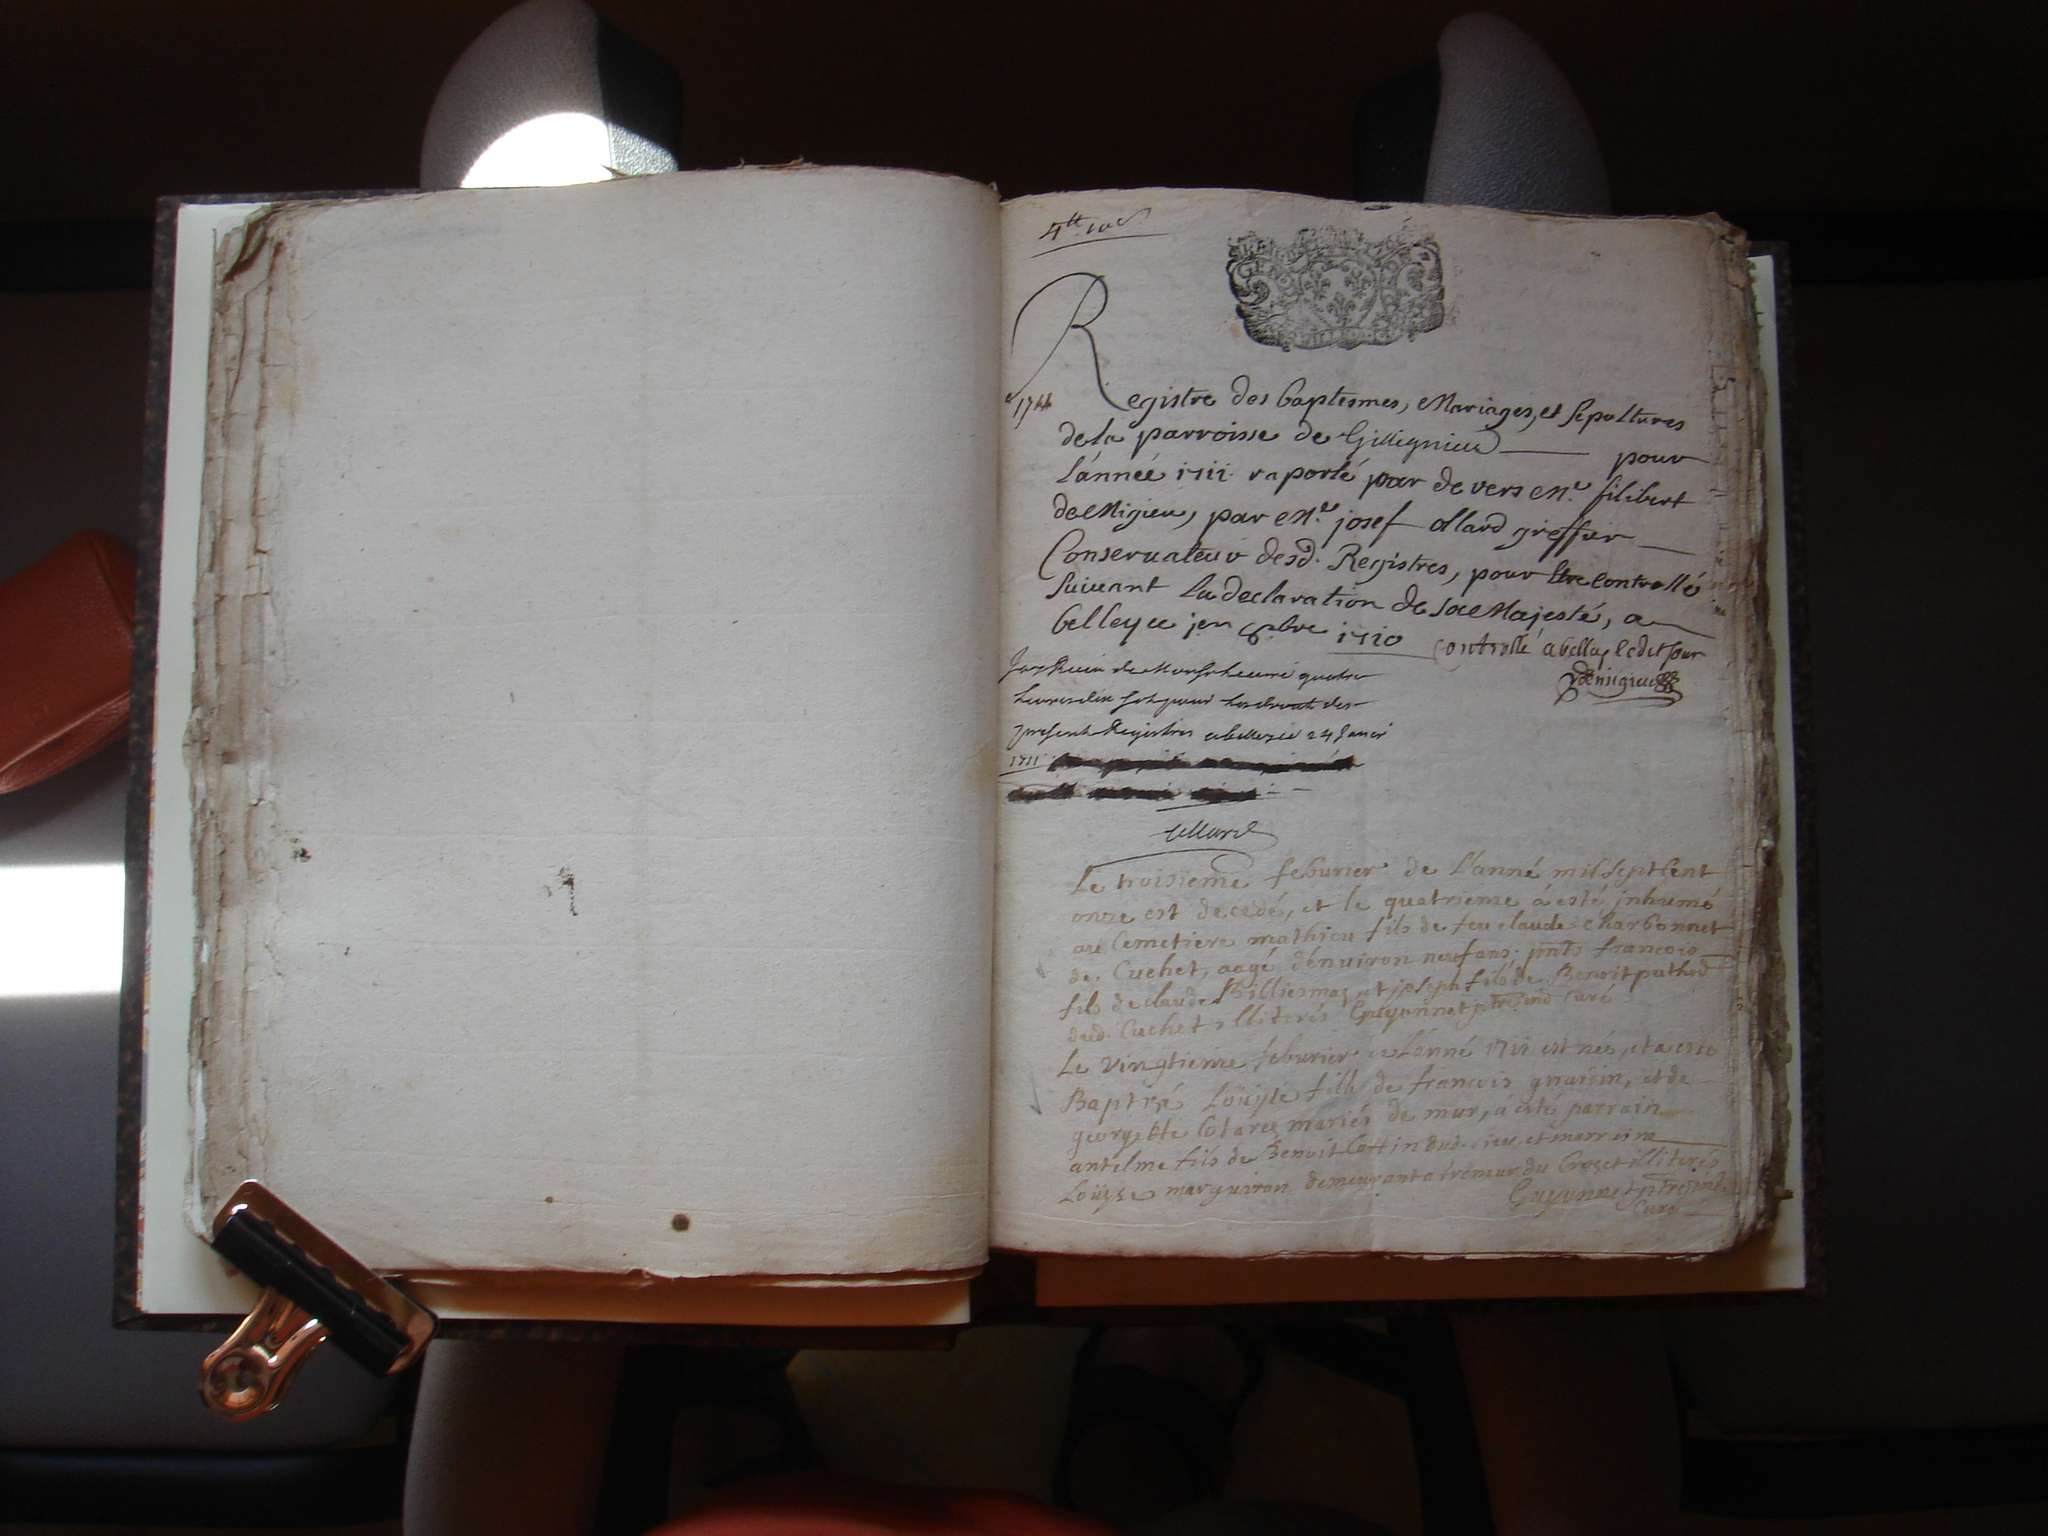 4tt 10s
Registre des baptesmes, Mariages, et sepoltures
1711
de la parroisse de Gillignieu pour
l'année 1711 raporté par devers Me. filibert
de Migieu, par Me. josef ollard greffier
Conservateur desd. Registres, pour être controllé
suivant la declaration de sa Majesté, a
belley ce jer xbre 1710
Controllé a belley ledit jour
De migieu
Jay Receu de quatre
livres dix sols pour les droits des
present Registres a belley ce 24 Janvi
1711
ollard
Le troisieme feburier de L'anné mil sept Cent
onze est decedé, et le quatrieme à esté jnhumé
au Cemetiere mathieu fils de feu claude charbonnet
de Cuchet, aagé d'enuiron neuf ans; pnts francois
fils de claude et joseph fils de Benoit puthod
dud. Cuchet illiterés Guyonnet ptre jnd. Curé
Le vingtieme feburier de L'anné 1711 est née, et a esté
Baptisé Loüyse fille de francois et de
georgette mariés de mur, à esté parrain
antelme fils de Benoit Cottin dud. lieu et marreina
Loüyse marguiron demeurant a du Croset illiterés
Guyonnet ptre jnd.
Curé